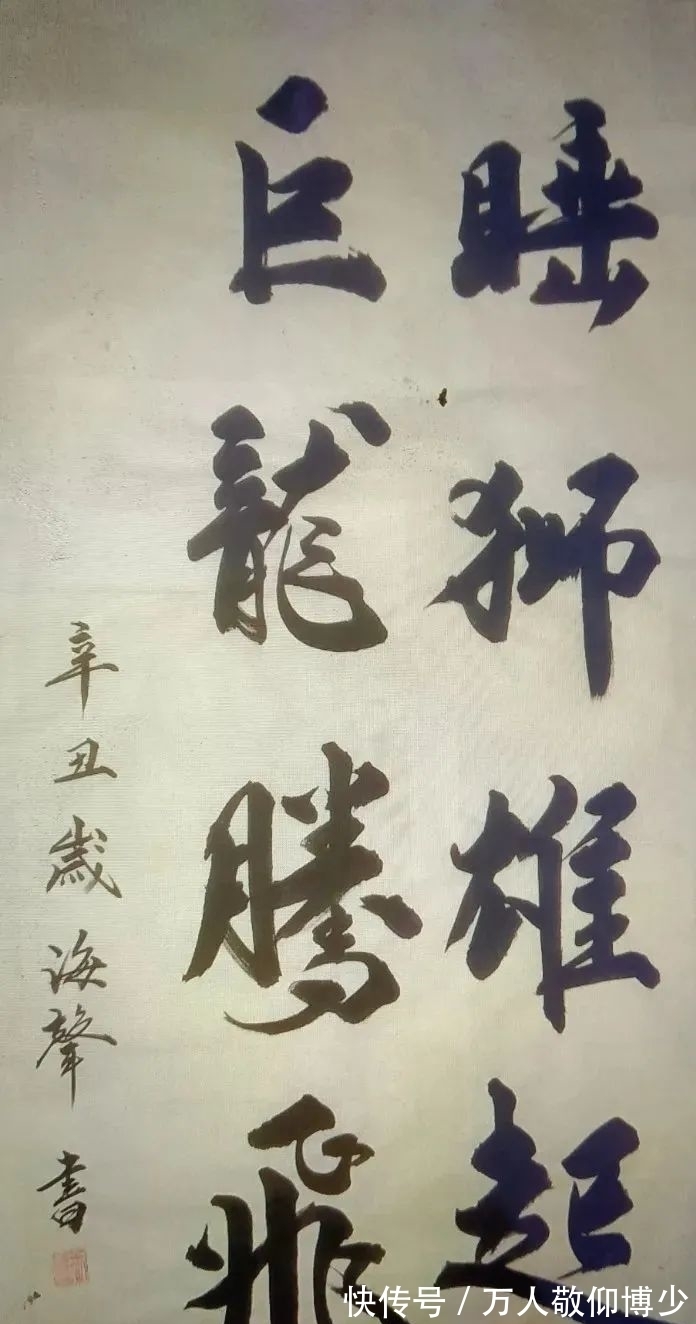 睡狮雄起
巨龍騰飛
辛丑歲海聲書
快传号/万人敬仰博少